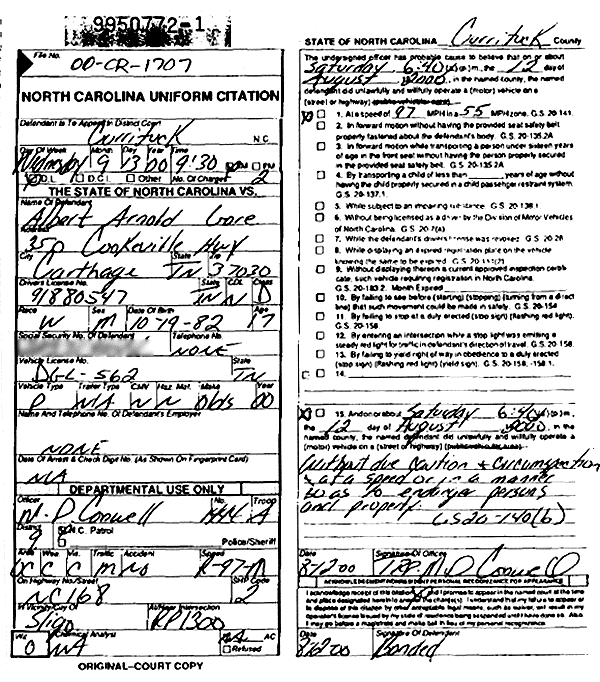 9950772-1
File No. 00-CR-1707
NORTH CAROLINA UNIFORM CITATION
Defendant Is To Appear In District Court
Currituck N.C.
Day Of Week Month Day Year Time
Wednesday 9 13 00 9:30 AM PM
O.L. D.C.I. Other No. Of Charges 2
THE STATE OF NORTH CAROLINA VS.
Name Of Defendant
Albert Arnold Gore
Address
350 Cookeville Hwy
City State Zip
Carthage TN 37030
Drivers License No. State CDL Class
91880547 TN N D
Race Sex Date Of Birth Age
W M 10-19-82 17
Social Security No. Of Defendant Telephone No.
NONE
Vehicle License No. State
DGL-562 TN
Vehicle Type Trailer Type CMV Haz. Mat. Make Year
P NA N N Olds 00
Name And Telephone No. Of Defendant's Employer
NONE
Date Of Arrest & Check Digit No. (As Shown On Fingerprint Card)
NA
DEPARTMENTAL USE ONLY
Officer No. Troop
M. D. Conwell A
District N.C. Patrol
9 Police/Sheriff
Area Wea. Vis. Traffic Accident Speed
C C M No R-97-A
On Highway No./Street SHP Code
NC 168 2
In Vicinity/City Of At/Near Intersection
Sligo RP1300
Wit. Chemical Analyst AC
0 NA NA Refused
ORIGINAL-COURT COPY
STATE OF NORTH CAROLINA Currituck County
The undersigned officer has probable cause to believe that on or about
Saturday 6:40 (a)(p)m, the 12 day of
August 2000, in the named county, the named
defendant did unlawfully and willfully operate a (motor) vehicle on a
(street or highway) (public vehicular area)
1. At a speed of 97 MPH in a 55 MPH zone. G.S. 20-141.
2. In forward motion without having the provided seat safety belt
properly fastened about the defendant's body. G.S. 20-135.2A
3. In forward motion while transporting a person under sixteen years
of age in the front seat without having the person properly secured
in the provided seat safety belt. G.S. 20-135.2A
4. By transporting a child of less than years of age without
having the child properly secured in a child passenger restraint system.
G.S. 20-137.1.
5. While subject to an impairing substance. G.S. 20-138.1
6. Without being licensed as a driver by the Division of Motor Vehicles
of North Carolina. G.S. 20-7(a)
7. While the defendant's drivers license was revoked. G.S. 20-28
8. While displaying an expired registration plate on the vehicle
knowing the same to be expired. G.S. 20-111(2)
9. Without displaying thereon a current approved inspection certifi-
cate, such vehicle requiring registration in North Carolina.
G.S. 20-183.2. Month Expired
10. By failing to see before (starting) (stopping) (turning from a direct
line) that such movement could be made in safety. G.S. 20-154
11. By failing to stop at a duly erected (stop sign) (flashing red light).
G.S. 20-158
12. By entering an intersection while a stop light was emitting a
steady red light for traffic in defendant's direction of travel. G.S. 20-158
13. By failing to yield right of way in obedience to a duly erected
(stop sign) (flashing red light) (yield sign). G.S. 20-158, -158.1.
14.
15. And on or about Saturday 6:40 (a)(p)m,
the 12 day of August 2000, in the
named county, the named defendant did unlawfully and willfully operate a
(motor) vehicle on a (street or highway) (public vehicular area)
Without due caution & circumspection
& at a speed or in a manner
so as to endanger persons
and property.
GS 20-140(b)
Date Signature Of Officer
8/12/00 TRP. M D Conwell
ACKNOWLEDGMENT/NONRESIDENT PERSONAL RECOGNIZANCE FOR APPEARANCE
I acknowledge receipt of this citation and I promise to appear in the named court at the time
and place designated herein to answer the charge(s). I understand that my failure to appear or
to dispose of this citation by other acceptable legal means, such as waiver, will result in my
operator's license issued by my state of residence being suspended until I have done so. Also
I may go before a magistrate and make bail in lieu of my personal recognizance.
Date Signature Of Defendant
8/12/00 Bonded